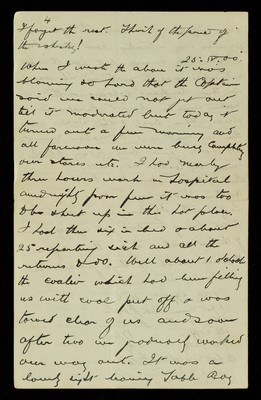 4
I forget the rest. Think of the price of
the whisky!
25-5.00.
When I wrote the above it was
blowing so hard that the Captain
said we could not get out
till it moderated but today it
turned out a fine morning and
all forenoon we were busy completing
our stores etc. I had nearly
three hours work in hospital
and right poor fun it was too
to be shut up in this hot place.
I had the six in bed & about
25 reporting sick and all the
returns &c. Well about 1 o'clock
the coalier which had been filling
us with coal put off & was
towed clear of us and soon
after two we gradually worked
our way out. It was a
lovely sight leaving Table Bay